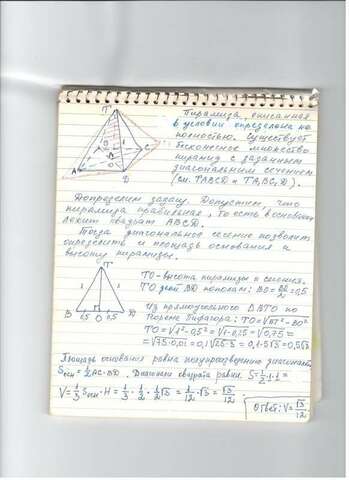 T
Пирамида, описанная
в условии определена не
полностью. Существует
бесконечное множество
пирамид с заданным
диагональным сечением
(см. TABCD и TA₁BC₁D).
A
B
C
D
O
Доопределим задачу. Допустим, что
пирамида правильная, то есть в основании
лежит квадрат ABCD.
Тогда диагональное сечение позволит
определить и площадь основания и
высоту пирамиды.
T
1 1
B 0,5 O 0,5 D
TO - высота пирамиды и сечения.
TO делит BD пополам: BO = BD/2 = 0,5
Из прямоугольного ΔBTO по
теореме Пифагора: TO = √BT² - BO²
TO = √1² - 0,5² = √1 - 0,25 = √0,75 =
= √75·0,01 = 0,1√25·3 = 0,1·5√3 = 0,5√3
Площадь основания равна полупроизведению диагоналей
Sосн = 1/2 AC·BD. Диагонали квадрата равны. S = 1/2·1·1 =
V = 1/3 Sосн·H = 1/3·1/2·1/2√3 = 1/12·√3 = √3/12.
Ответ: V = √3/12